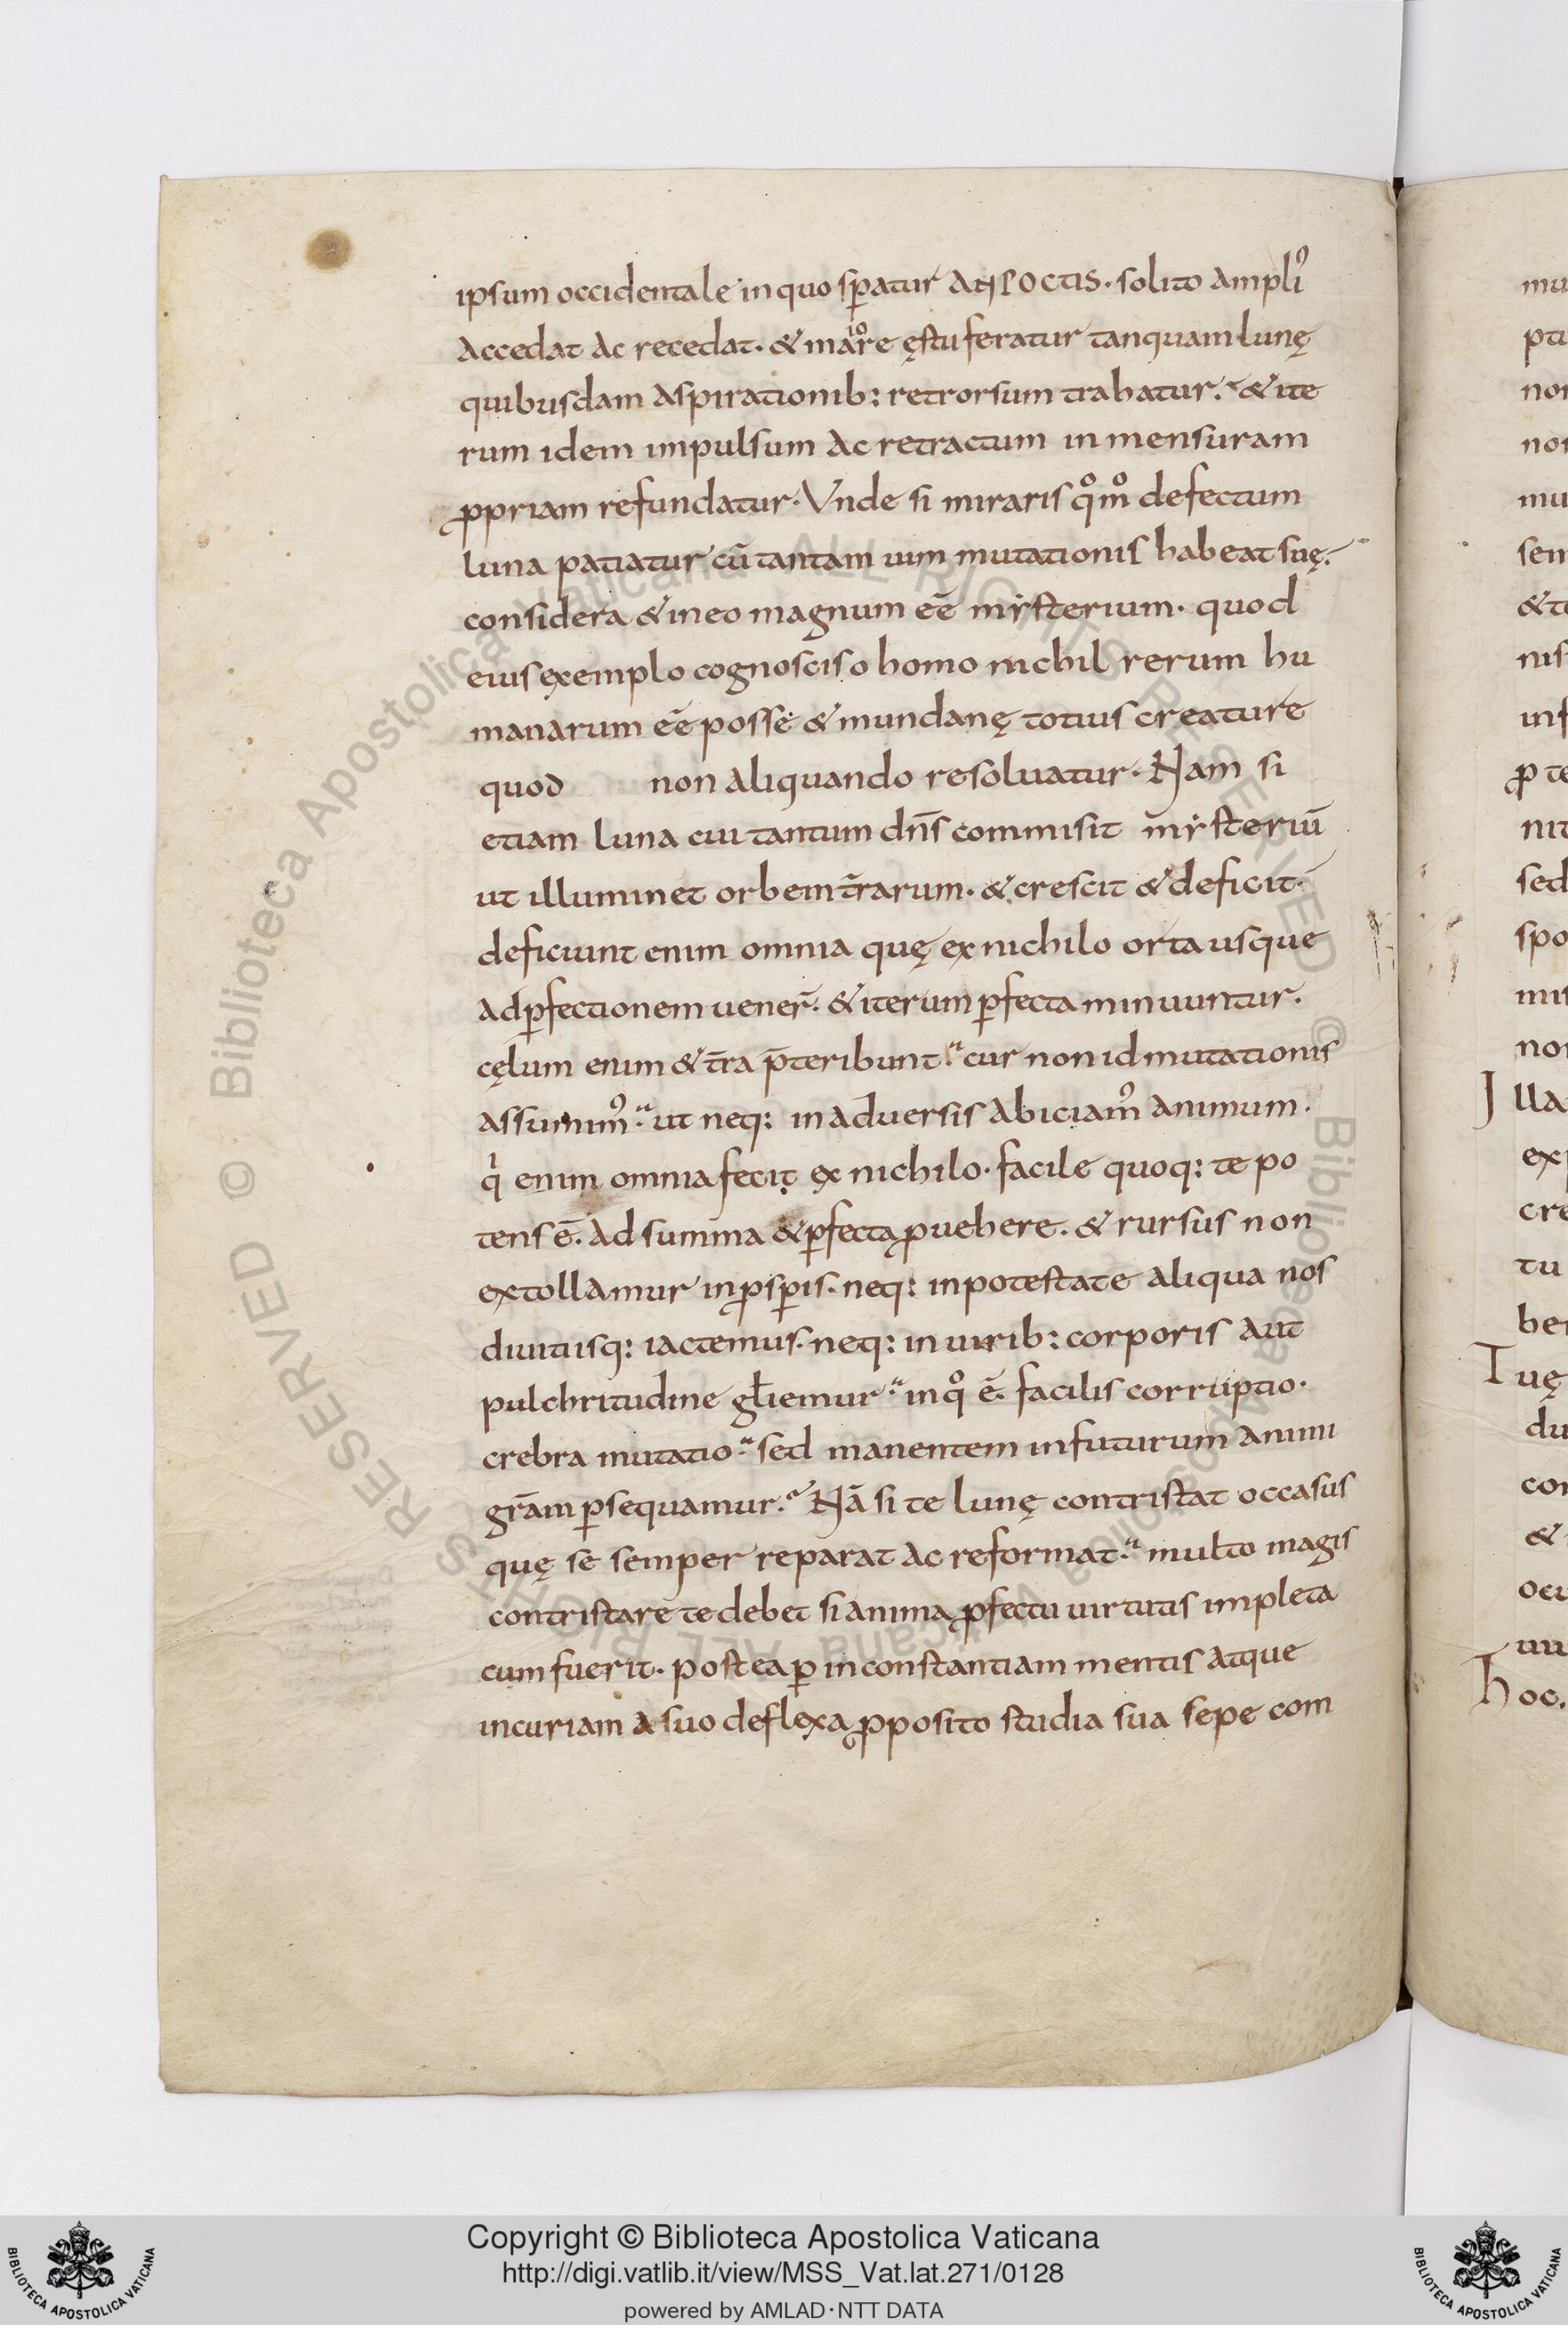 ipsum occidentale in quo sꝑatur solito ampli᾿
accedat ac recedat. & maiore ęstu feratur tanquam lunę
quibusdam aspirationib: retrorsum trahatur. & ite
rum idem impulsum ac retractum in mensuram
ꝓpriam refundatur. Vnde si miraris qͦmͦ defectum
luna patiatur cū tantam uim mutationis habeat suę.
considera & in eo magnum eē mẏsterium. quod
eius exemplo cognoscis o homo nichil rerum hu
manarum eē posse & mundanę totius creature
quod non aliquando resoluatur. Nam si
etiam luna cui tantum dn̄s commisit mẏsteriū
ut illuminet orbem t̄rarum. & crescit & deficit.
deficiunt enim omnia quę ex nichilo orta usque
ad ꝑfectionem uener̄. & iterum ꝑfecta minuuntur.
cęlum enim & t̄ra p̄teribunt. cur non id mutationis
assumim᾿. ut neq: in aduersis abiciam᾿ animum.
qⁱ enim omnia fecit ex nichilo. facile quoq: te po
tens ē. ad summa & ꝑfecta ꝓuehere. & rursus non
extollamur in ꝓsꝑis. neq: in potestate aliqua nos
diuitiisq: iactemus. neq: in uirib: corporis aut
pulchritudine gl̄iemur. in qͦ ē. facilis corruptio.
crebra mutatio. sed manentem in futurum animi
gr̄am ꝑsequamur. Nā si te lunę contristat occasus
quę se semper reparat ac reformat. multo magis
contristare te debet si anima ꝓfectu uirtutis impleta
cum fuerit. postea ꝑ inconstantiam mentis atque
incuriam a suo deflexa ꝓposito studia sua sepe com
mu
pti
non
non
mu
sem
nis
inf
ꝓ te
nit
sed
spo
mis
non
Illa
exp
cre
tu
ben
Tuę
du
con
&
ocu
uu
hoc.
© Biblioteca Apostolica Vaticana ALL RIGHTS RESERVED © Biblioteca Apostolica Vaticana ALL RIGHTS RESERVED
Copyright © Biblioteca Apostolica Vaticana
http://digi.vatlib.it/view/MSS_Vat.lat.271/0128
powered by AMLAD·NTT DATA
BIBLIOTECA APOSTOLICA VATICANA
BIBLIOTECA APOSTOLICA VATICANA